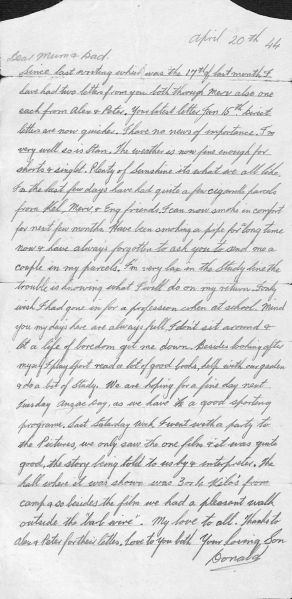 April 20th 44
Dear Mum & Dad.
Since last writing which was the 17th of last month I
have had two letters from you both though Merv also one
each from Alex & Peter. Your latest letter Jan 15th. Direct
letters are now quicker. I have no news of importance. I'm
very well so is Stan. The weather is now fine enough for
shorts & singlet. Plenty of sunshine its what we all like,
In the last few days have had quite a few cigarette parcels
from Mel, Merv & Eng friends. I can now smoke in comfort
for next few months. Have been smoking a pipe for long time
now & have always forgotten to ask you to send me a
couple in my parcels. I'm very lax in the study line the
trouble is knowing what I will do on my return. I only
wish I had gone in for a profession when at school. Mind
you my days here are always full I don't sit around &
let a life of boredom get me down. Besides looking after
myself I play sport read a lot of good books, help with our garden
& do a bit of study. We are hoping for a fine day next
Tuesday Anzac Day, as we have a good sporting
programe. Last Saturday week I went with a party to
the Pictures, we only saw the one film & it was quite
good, the story being told to us by an interpreter. The
hall where it was shown was 3 or 4 Kilo's from
camp & so besides the film we had a pleasant walk
outside the "barb wire". My love to all. Thanks to
Alex & Peter for their letters. Love to you both Your loving Son
Donald